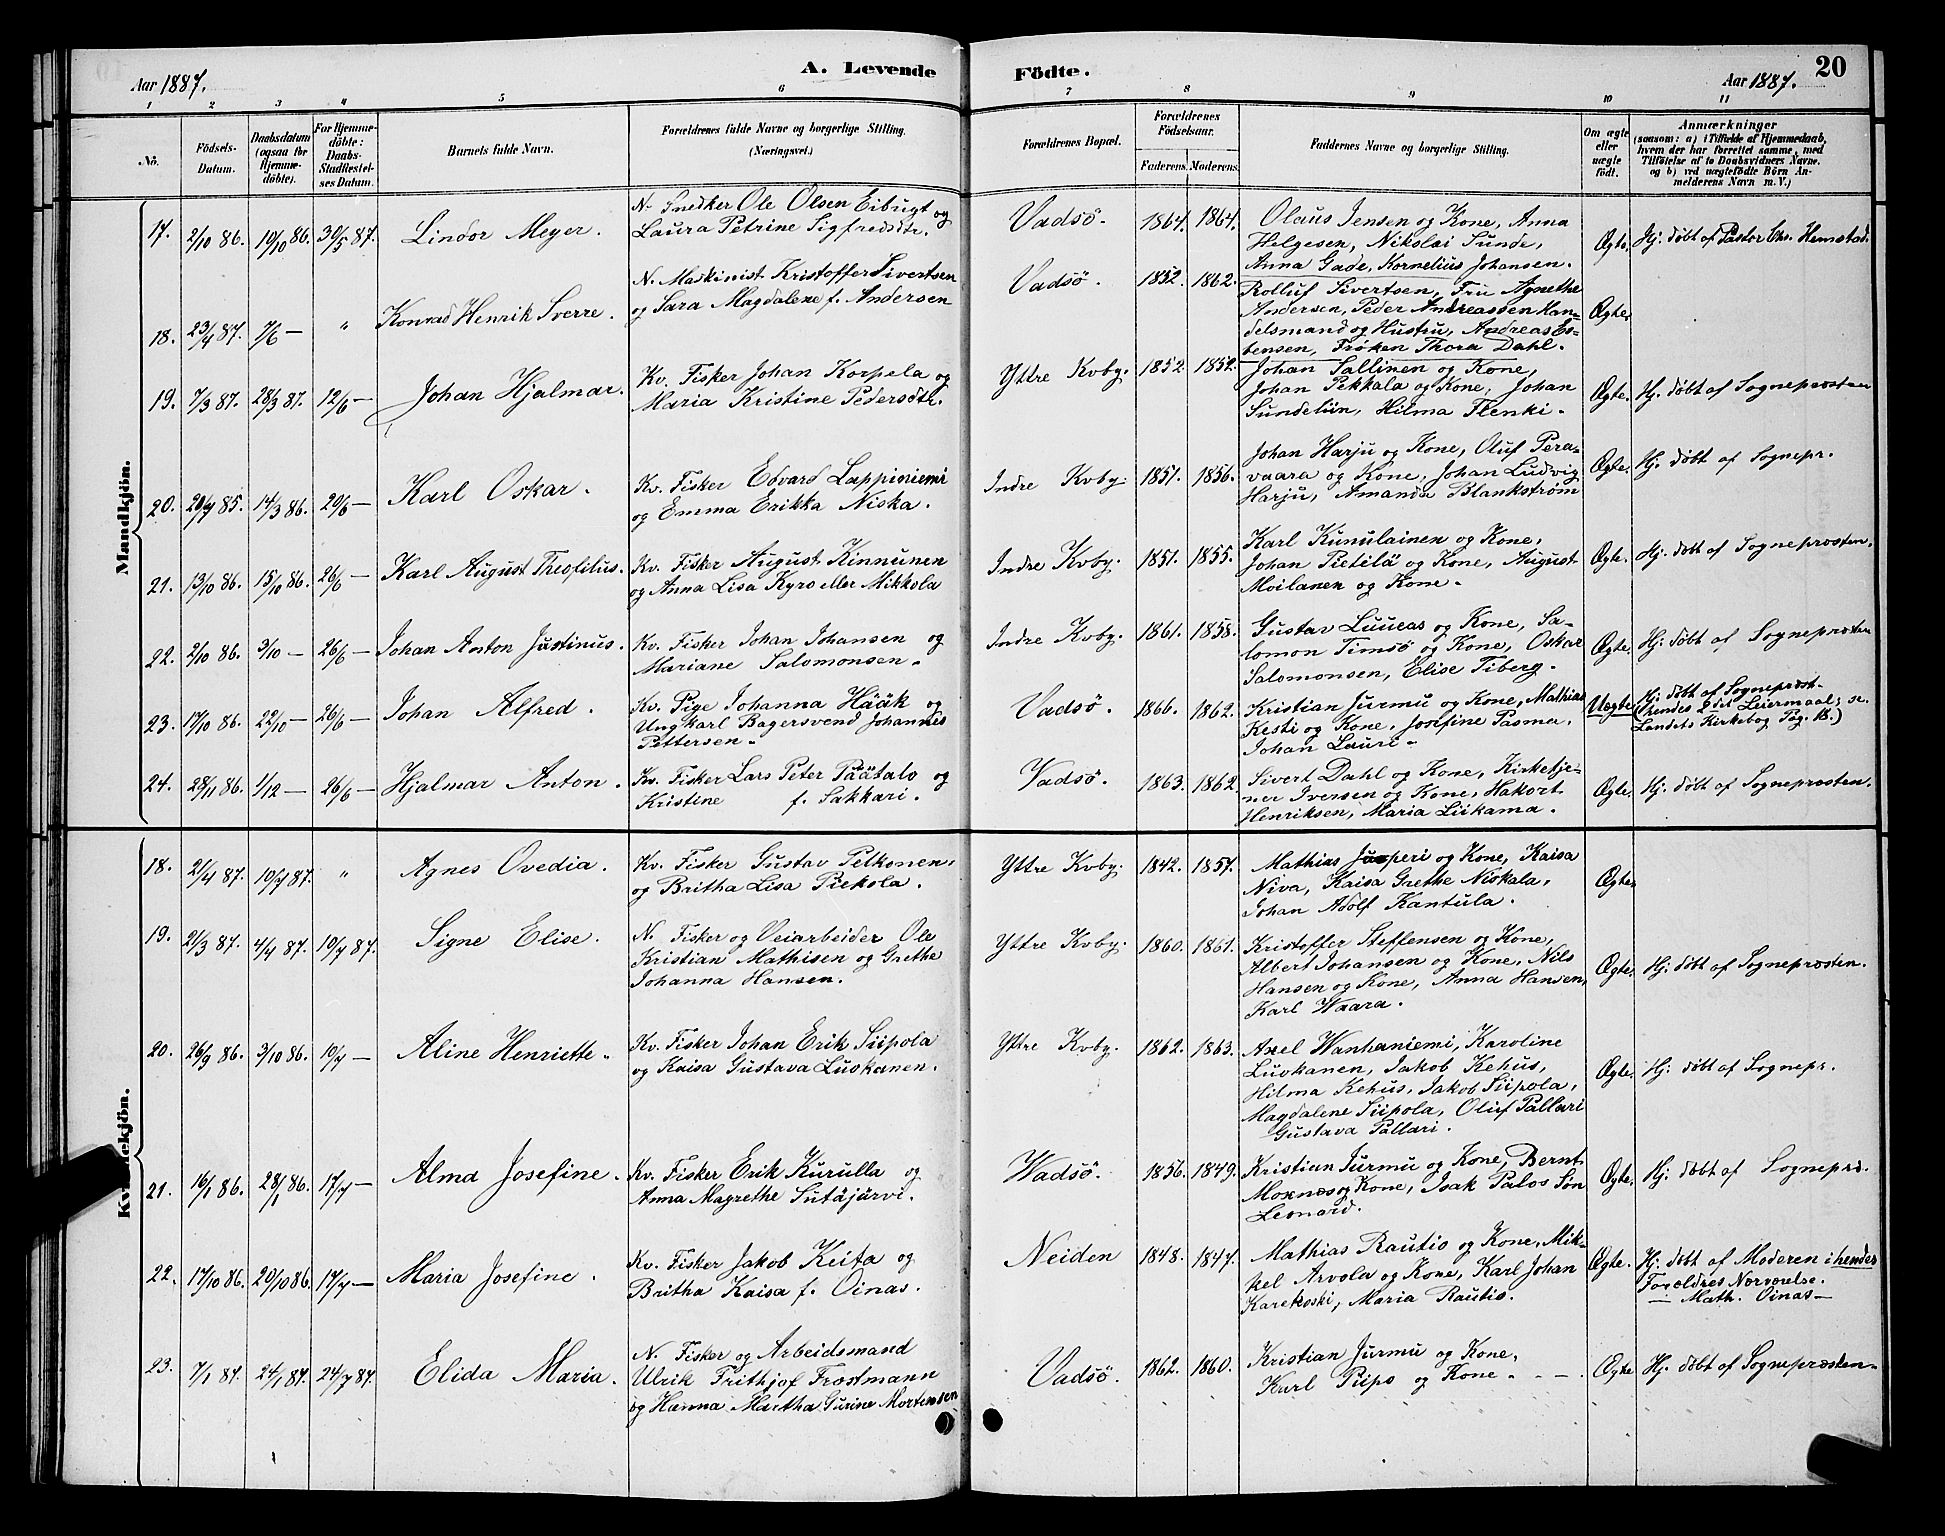 Aar 1887.
A. Levende
Födte.
Aar 1887.
20
1 2 3 4 5 6 7 8 9 10 11
No.
Födsels-Datum.
Daabsdatum (ogsaa for Hjemme-döbte).
For Hjemme-döbte: Daabs-Stadfæstel-ses Datum.
Barnets fulde Navn.
Forældrenes fulde Navne og borgerlige Stilling. (Næringsvei.)
Forældrenes Bopæl.
Forældrenes Födselsaar.
Faderens. Moderens.
Faddernes Navne og borgerlige Stilling.
Om ægte eller uægte födt.
Anmærkninger
(saasom: a) i Tilfælde af Hjemmedaab, hvem der har forrettet samme, med Tilföielse af to Daabsvidners Navne. og b) ved uægtefödte Börn An-melderens Navn m. V.)
Mandkjön.
17. 2/10 86. 10/10 86. 30/5 87. Lindor Meyer.
N. Snedker Ole Olsen Eibugt og
Laura Petrine Sigfredsdtr.
Vadsö. 1864. 1864.
Olaus Jensen og Kone, Anna
Helgesen, Nikolai Sunde,
Anna Gade, Kornelius Johansen.
Ægte. Hj. döbt af Pastor Chr. Hemstad.
18. 23/4 87. 7/6 — " Konrad Henrik Sverre.
N. Maskinist Kristoffer Sivertsen
og Sara Magdalene f. Andersen
Vadsö. 1852. 1862.
Rolluf Sivertsen, Fru Agnethe
Andersen, Peder Andreassen Han-
delsmand og Hustru, Andreas Es-
bensen, Fröken Thora Dahl.
Ægte.
19. 7/3 87. 28/3 87. 12/6 — Johan Hjalmar.
Kv. Fisker Johan Korpela og
Maria Kristine Pedersdtr.
Yttre Kvby. 1852. 1852.
Johan Sallinen og Kone,
Johan Pekkala og Kone, Johan
Sundeliin, Hilma Flenki.
Ægte. Hj. döbt af Sogneprosten
20. 20/7 85. 14/3 86. 20/6 — Karl Oskar.
Kv. Fisker Edvard Lappiniemi
og Emma Erikka Niska.
Indre Kvby. 1851. 1856.
Johan Harju og Kone, Oluf Pera-
vaara og Kone, Johan Ludvig
Harju, Amanda Blankström
Ægte. Hj. döbt af Sognepr.
21. 13/10 86. 15/10 86. 26/6 — Karl August Theofelus.
Kv. Fisker August Kinnunen
og Anna Lisa Kyro eller Mikkola
Indre Kvby. 1851. 1855.
Karl Kunulainen og Kone,
Johan Pietilä og Kone, August
Moilanen og Kone.
Ægte. Hj. döbt af Sogneprosten.
22. 2/10 86. 3/10 — 26/6 — Johan Anton Justinus.
Kv. Fisker Johan Johansen og
Mariane Salomonsen.
Indre Kvby. 1861. 1858.
Gustav Luueas og Kone, Sa-
lomon Timsö og Kone, Oskar
Salomonsen, Elise Tiberg.
Ægte. Hj. döbt af Sogneprosten
23. 17/10 86. 22/10 — 26/6 — Johan Alfred.
Kv. Pige Johanna Hääk og
Ungkarl Bagersvend Johannes
Pettersen.
Vadsö. 1866. 1862.
Kristian Jurmu og Kone, Mathias
Kesti og Kone, Josefine Pasma,
Johan Lauri.
Uægte Hj. döbt af Sogneprost.
(Hendes 2det Leiermaal; se
Landets Kirkebog Pag. 18.)
24. 28/11 86. 1/12 — 26/6 — Hjalmar Anton.
Kv. Fisker Lars Peter Päätalo og
Kristine f. Sakkari.
Vadsö. 1863. 1862.
Sivert Dahl og Kone, Kirketje-
ner Iversen og Kone, Hakort
Henriksen, Maria Liikama.
Ægte. Hj. döbt af Sogneprosten.
Kvindekjön.
18. 2/4 87. 10/7 87. " Agnes Ovedia.
Kv. Fisker Gustav Pelkonen
og Britha Lisa Piekola.
Yttre Kvby. 1842. 1857.
Mathias Juoperi og Kone, Kaisa
Niva, Kaisa Grethe Niskala,
Johan Adolf Kantula.
Ægte
19. 21/3 87. 4/4 87. 10/7 87. Signe Elise.
N. Fisker og Veiarbeider Ole
Kristian Mathisen og Grethe
Johanna Hansen.
Yttre Kvby. 1860. 1861.
Kristoffer Steffensen og Kone,
Albert Johansen og Kone, Nils
Hansen og Kone, Anna Hansen,
Karl Waara.
Ægte. Hj. döbt af Sogneprosten.
20. 26/9 86. 3/10 86. 10/7 — Aline Henriette.
Kv. Fisker Johan Erik Siipola
og Kaisa Gustava Luskanen.
Yttre Kvby. 1862. 1863.
Axel Wanhaniemi, Karoline
Luokanen, Jakob Kehus,
Hilma Kehus, Jakob Siipola,
Magdalene Siipola, Oluf Pallari
Gustava Pallari.
Ægte. Hj. döbt af Sognepr.
21. 16/1 86. 28/1 86. 17/7 — Alma Josefine.
Kv. Fisker Erik Kurulla og
Anna Magrethe Sutajärvi.
Wadsö. 1856. 1849.
Kristian Jurmu og Kone, Bernt
Moxnæs og Kone, Isak Palos Sön
Leonard.
Ægte. Hj. döbt af Sognepro.
22. 17/10 86. 20/10 86. 17/7 — Maria Josefine.
Kv. Fisker Jakob Keifa og
Britha Kaisa f. Oinas.
Neiden 1848. 1847.
Mathias Rautio og Kone, Mik-
kel Arvola og Kone, Karl Johan
Karekoski, Maria Rautio.
Ægte. Hj. döbt af Moderen i hendes
Forældres Nærværelse.
— Math. Oinas —
23. 7/1 87. 24/1 87. 24/7 87. Elida Maria.
N. Fisker og Arbeidsmand
Ulrik Frithjof Frostmann
og Hanna Martha Gurine Mortensen
Vadsö. 1862. 1860.
Kristian Jurmu og Kone,
Karl Piipo og Kone
Ægte Hj. döbt af Sogneprosten.